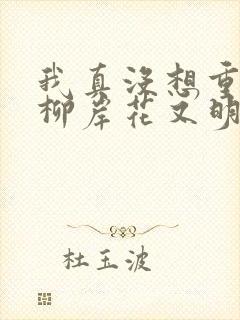 我真没想重
柳岸花又明
杜玉波